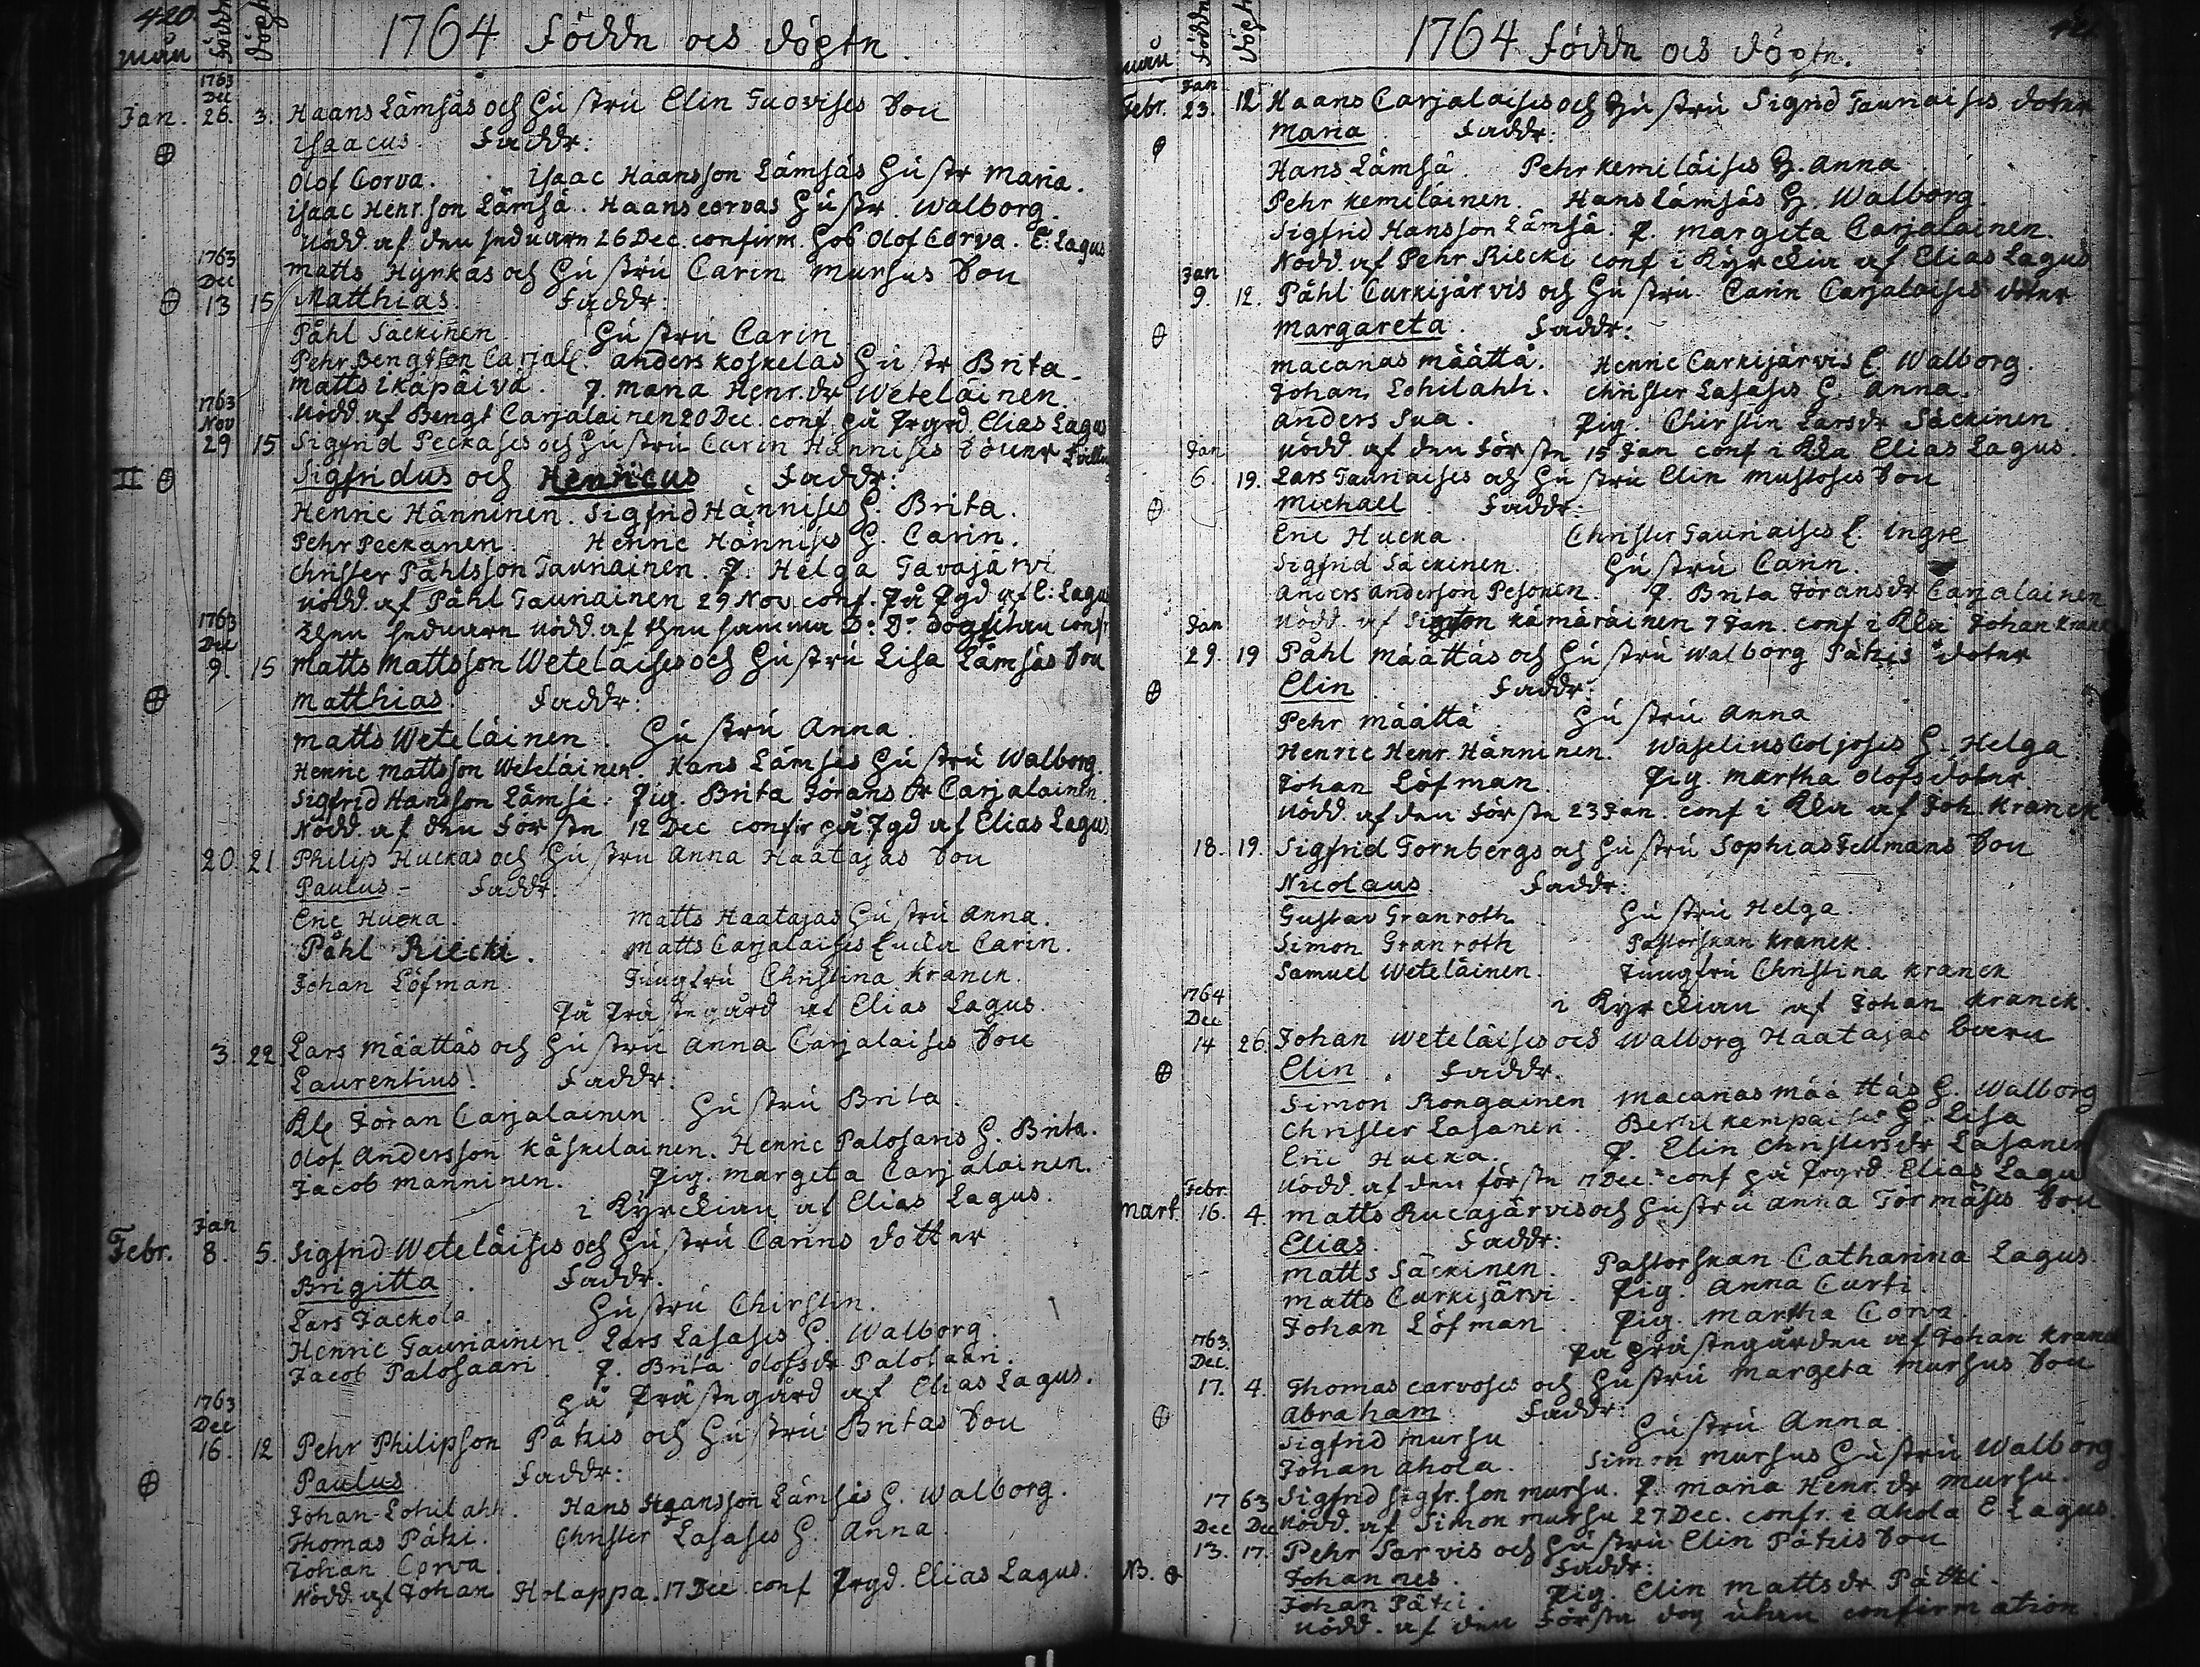 420
1764 Födde och döpte.
mån Födde Döpte
1763
Dec
Jan. 26. 3. Haans Lämsäs och Hustru Elin Tuovises Son
Isaacus. Faddr:
Olof Corva. Isaac Haansson Lämsäs Hustr Maria.
Isaac Henr.son Lämsä. Haans Corvas Hustr. Walborg.
Nödd. af den sednare 26 Dec. confirm. hos Olof Corva. E: Lagus
1763
Dec
Matts Hyrkäs och Hustru Carin Mursus Son
13 15 Matthias. Faddr:
Påhl Säckinen Hustru Carin
Pehr Bengtson Carjal. Anders Koskelas Hustr Brita.
Matts Ikäpäivä. P. Maria Henr.dr Weteläinen.
1763
Nov
Nödd. af Bengt Carjalainen 20 Dec. conf. på Prgrd. Elias Lagus
29 15 Sigfrid Peckases och Hustru Carin Hännises Söner
II Sigfridus och Henricus Faddr:
Henric Hänninen. Sigfrid Hännises H. Brita.
Pehr Peckanen. Henric Hännises H. Carin.
Christer Påhlsson Taurainen. P. Helga Tavajärvi
Nödd. af Påhl Taurainen 29 Nov. conf. På Pgd af E: Lagus
1763
Dec
then sednare nödd. af then samma D: D:
9. 15 Matts Mattsson Weteläises och Hustru Lisa Lämsäs Son
Matthias. Faddr:
Matts Weteläinen. Hustru Anna.
Henric Mattsson Weteläinen. Hans Lämsäs Hustru Walborg.
Sigfrid Hansson Lämsä. Pig. Brita Jöransdr Carjalainen.
Nödd. af den förste 12 Dec confir på Pgd af Elias Lagus
20. 21 Philip Huckas och Hustru Anna Haatajas Son
Paulus - Faddr:
Eric Hucka. Matts Haatajas Hustru Anna.
Påhl Riecki. Matts Carjalaises Enckia Carin.
Johan Löfman Jungfru Christina Kranck.
På Prästegård af Elias Lagus.
3. 22. Lars Määttäs och Hustru Anna Carjalaises Son
Laurentius. Faddr:
Kle Jöran Carjalainen. Hustru Brita.
Olof Andersson Käskelainen. Henric Palosaris H. Brita.
Jacob Manninen. Pig. Margeta Carjalainen.
i Kyrckian af Elias Lagus.
Jan
Febr. 8. 5. Sigfrid Weteläises och Hustru Carins dotter
Brigitta. Faddr.
Lars Jackola. Hustru Chirstin.
Henric Tauriainen. Lars Lasases H. Walborg.
Jacob Palosaari. P. Brita Olofsdr Palosaari.
på Prästegård af Elias Lagus.
1763
Dec
16. 12 Pehr Philipson Pätzis och Hustru Britas Son
Paulus Faddr:
Johan Lohilahti. Hans Hansson Lämsäs H. Walborg.
Thomas Pätzi. Christer Lasases H. Anna.
Johan Corva.
Nödd. af Johan Holappa. 17 Dec. conf Prgd. Elias Lagus.
1764 Födde och Döpte.
mån Födde Döpte
Jan
Febr. 23. 12 Haans Carjalaises och Hustru Sigrid Tauriaises doter
Maria Faddr:
Hans Lämsä. Pehr Kemiläises H. Anna
Pehr Kemiläinen. Hans Lämsäs H. Walborg.
Sigfrid Hansson Lämsä. P. Margeta Carjalainen.
Nödd af Pehr Riecki conf i Kyrckia af Elias Lagus
Jan
9. 12. Påhl Curkijärvis och Hustru Carin Carjalaises doter
Margareta. Faddr:
Macanas Määttä. Henric Curkijärvis E. Walborg.
Johan Lohilahti. Christer Lasases H. Anna.
Anders Sua. Pig. Chirstin Larsdr Säckinen
Jan
Nödd. af den förste 15 Jan conf i Kla Elias Lagus.
6. 19. Lars Tauriaises och Hustru Elin Mustoses Son
Michael. Faddr:
Eric Hucka. Christer Tauriaises E. Ingre
Sigfrid Säckinen. Hustru Carin.
Anders Anderson Pesonen. P. Brita Jöransdr Carjalainen
Jan
Nödd. af Sigfrid Kämäräinen 7 Jan. conf i Kla Johan Kranck
29. 19 Påhl Määttäs och Hustru Walborg Pätzis doter
Elin. Faddr:
Pehr Määttä. Hustru Anna
Henric Henr. Hänninen. Waselius Coljoses H. Helga
Johan Löfman. Pig. Martha Olofsdoter
Nödd. af den förste 23 Jan. conf i Kla af Joh. Kranck
18. 19. Sigfrid Tornbergs och Hustru Sophias Fellmans Son
Nicolaus. Faddr:
Gustav Granroth. Hustru Helga.
Simon Granroth Pastorskan Kranck.
Samuel Weteläinen. Jungfru Christina Kranck
i Kyrckian af Johan Kranck.
1764
Dec
14 26. Johan Weteläises och Walborg Haatajas barn
Elin. Faddr.
Simon Rongainen Macanas Määttäs H. Walborg
Christer Lasanen. Bertil Kempaises H. Lisa
Eric Hucka. P. Elin Christersdr Lasanen
Nödd. af den förste 17 Dec. conf på Prgrd. Elias Lagus
Febr.
Mart. 16. 4. Matts Rucajärvis och Hustru Anna Törmäses Son
Elias. Faddr:
Matts Säckinen. Pastorskan Catharina Lagus.
Matts Curkijärvi. Pig. Anna Curti.
Johan Löfman. Pig. Martha Corva
På Prästegården af Johan Kranck
1763.
Dec.
17. 4. Thomas Carvoses och Hustru Margeta Mursus Son
Abraham. Faddr:
Sigfrid Mursu. Hustru Anna
Johan Ahola. Simon Mursus Hustru Walborg.
17 63 Sigfrid Sigfr.son Mursu. P. Maria Henr.dr Mursu.
Dec Dec Nödd. af Simon Mursu 27 Dec. confr. i Ahola E Lagus.
13. 17. Pehr Sarvis och Hustru Elin Pätzis Son
NB. Johannes. Faddr:
Johan Pätzi. Pig. Elin Mattsdr Pätzi.
Nödd. af den förste dog utan confirmation